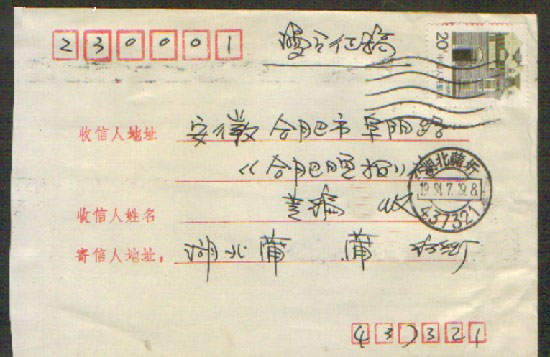 230001
有奖征稿
20
收信人地址 安徽合肥市阜阳路
《合肥晚报》
收信人姓名 收
寄信人地址： 湖北蒲 蒲纺
湖北蒲圻
437321
437321